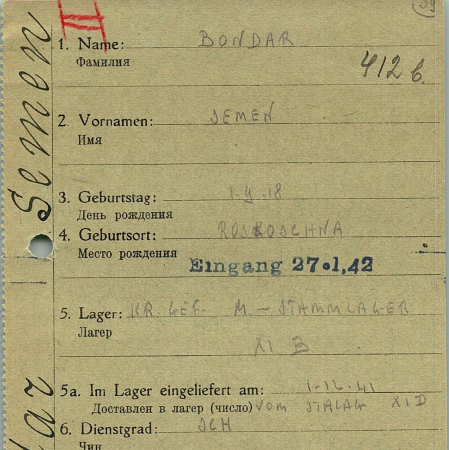 39
II
1. Name: BONDAR
Фамилия
412 б.
2. Vornamen: SEMEN
Имя
3. Geburtstag: 1.9.18
День рождения
4. Geburtsort: ROSKOSCHNA
Место рождения
Eingang 27.1.42
5. Lager: KR. GEF. M-STAMMLAGER
Лагер
XI B
5a. Im Lager eingeliefert am: 1.12.41
Доставлен в лагер (число) VOM STALAG XI D
6. Dienstgrad: SCH
Чин
Semen